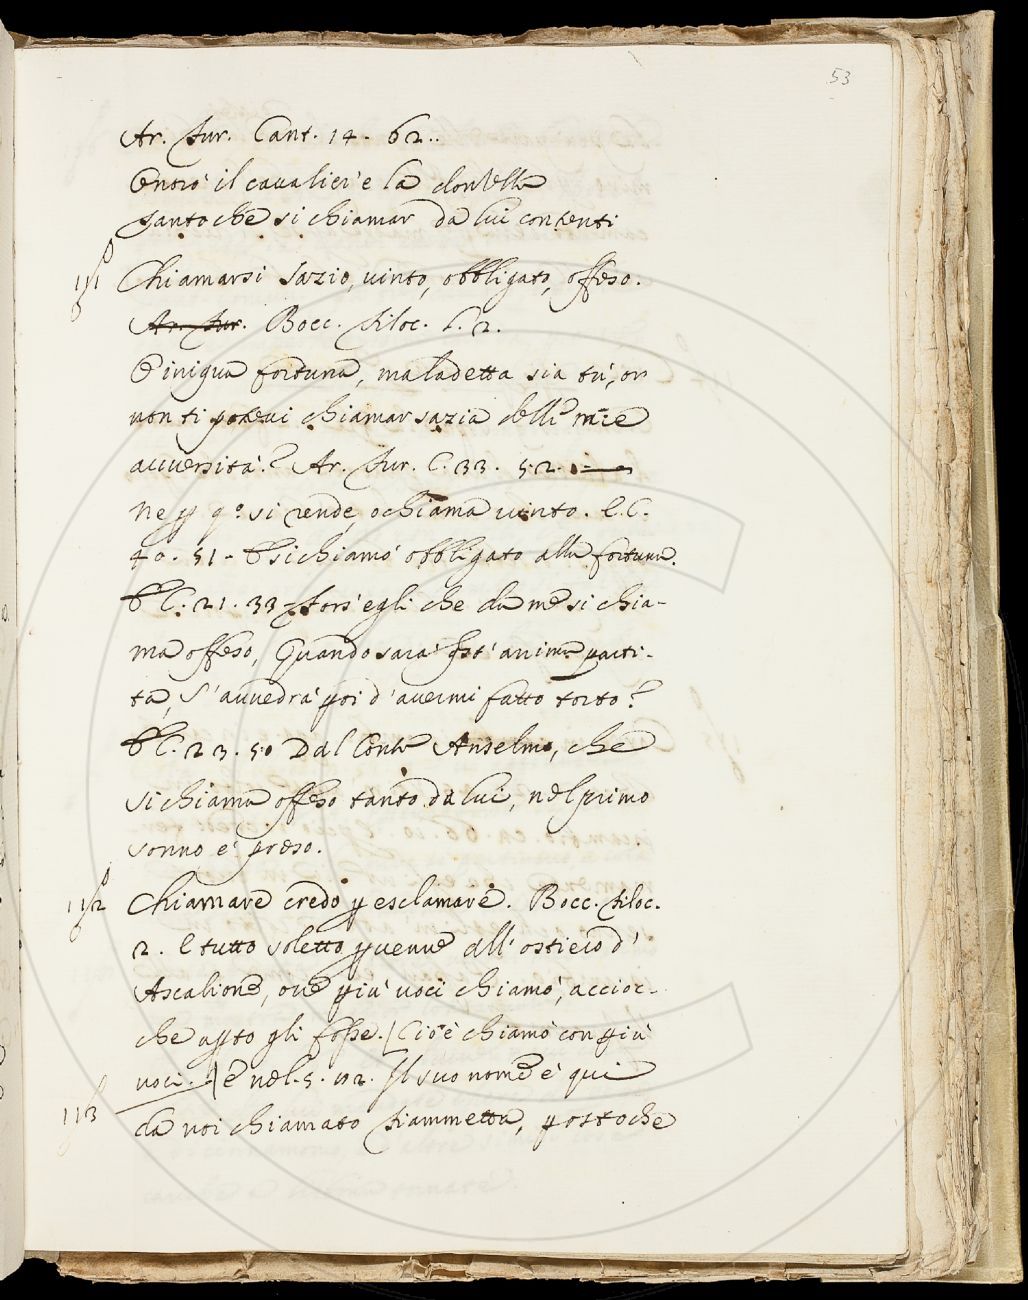 53
Ar. Fur. Cant. 14. 62..
Entrò il cavalier e la donzella
tanto che si chiamar da lui contenti
Chiamarsi Sazio, vinto, obbligato, offeso.
Ar. Fur. Bocc. Filoc. l. 2.
O iniqua fortuna, maladetta sia tù, or
non ti potevi chiamar sazia delle mie
avversità? Ar. Fur. C. 33. 52.
Ne p qº. si rende, o chiama vinto. E C.
40. 51. E si chiamò obbligato alla fortuna.
E C. 21. 33 Fors' egli che da me si chia-
ma offeso, Quando sarà qst' anima parti-
ta, S' avvedrà poi d' avermi fatto torto?
E C. 23. 50 Dal Conte Anselmo, che
si chiama offeso tanto da lui, nel primo
sonno è preso.
112 Chiamare credo p esclamare. Bocc. Filoc.
2. E tutto soletto pvenne all' ostiero d'
Ascalione, ove più voci chiamò, accioc-
che apto gli fosse. (Cioè chiamò con più
voci.) E nel. 5. 102. Il suo nome è qui
113 da noi chiamato Fiammetta, posto che